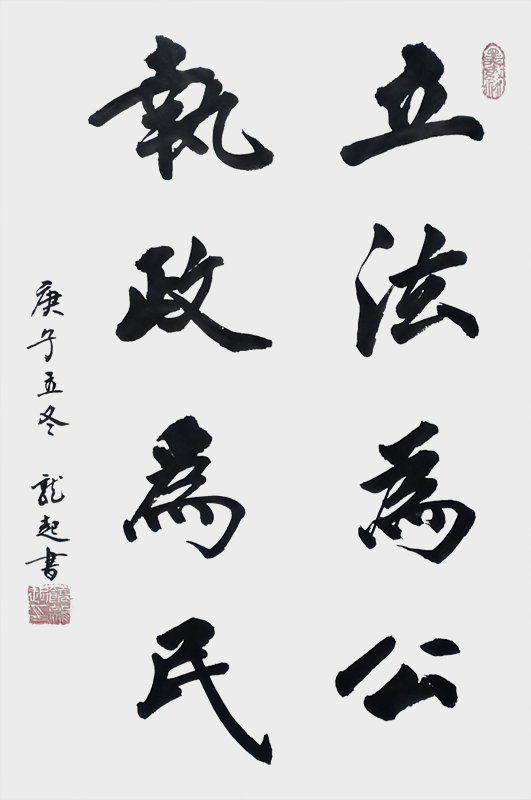 立法為公
執政為民
庚子立冬 龍起書